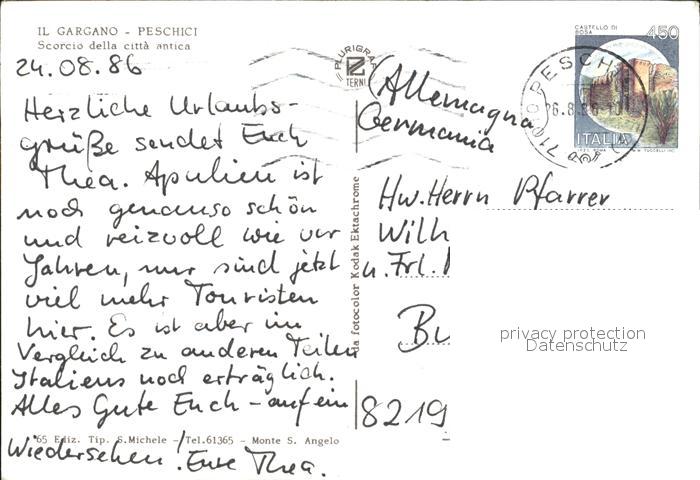 IL GARGANO - PESCHICI
Scorcio della città antica
24.08.86
Herzliche Urlaubs-
grüße sendet Euch
Thea. Apulien ist
noch genauso schön
und reizvoll wie vor
Jahren, nur sind jetzt
viel mehr Touristen
hier. Es ist aber im
Vergleich zu anderen Teilen
Italiens noch erträglich.
Alles Gute Euch - auf ein
Wiedersehen! Eure Thea.
65 Ediz. Tip. S.Michele - Tel.61365 - Monte S. Angelo
PLURIGRAF
TERNI
da fotocolor Kodak Ektachrome
CASTELLO DI
BOSA
450
ITALIA
PESCHICI
26.8.86
710
(Allemagna
Germania
Hw. Herrn Pfarrer
Wilh
u. Frl.
Bu
8219
privacy protection
Datenschutz